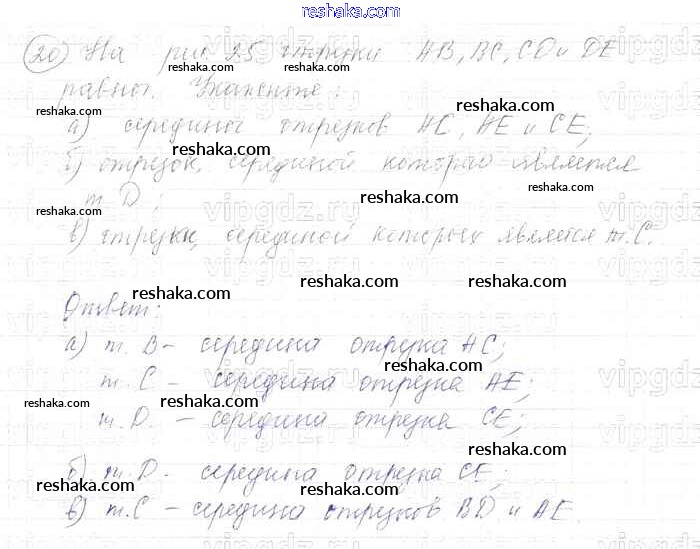 reshaka.com
20) На рис. 25 отрезки AB, BC, CD и DE
reshaka.com reshaka.com
равны. Укажите:
reshaka.com
а) середины отрезков AC, AE и CE;
reshaka.com
б) отрезок, серединой которого является
reshaka.com
т. D;
reshaka.com
reshaka.com
vipgdz.ru
в) отрезки, серединой которых является т. С.
reshaka.com reshaka.com reshaka.com
Ответ:
а) т. B - середина отрезка AC;
reshaka.com
т. C - середина отрезка AE;
reshaka.com reshaka.com
т. D. - середина отрезка CE;
reshaka.com
б) т. D - середина отрезка CE;
reshaka.com reshaka.com
в) т. C - середина отрезков BD и AE.
reshaka.com